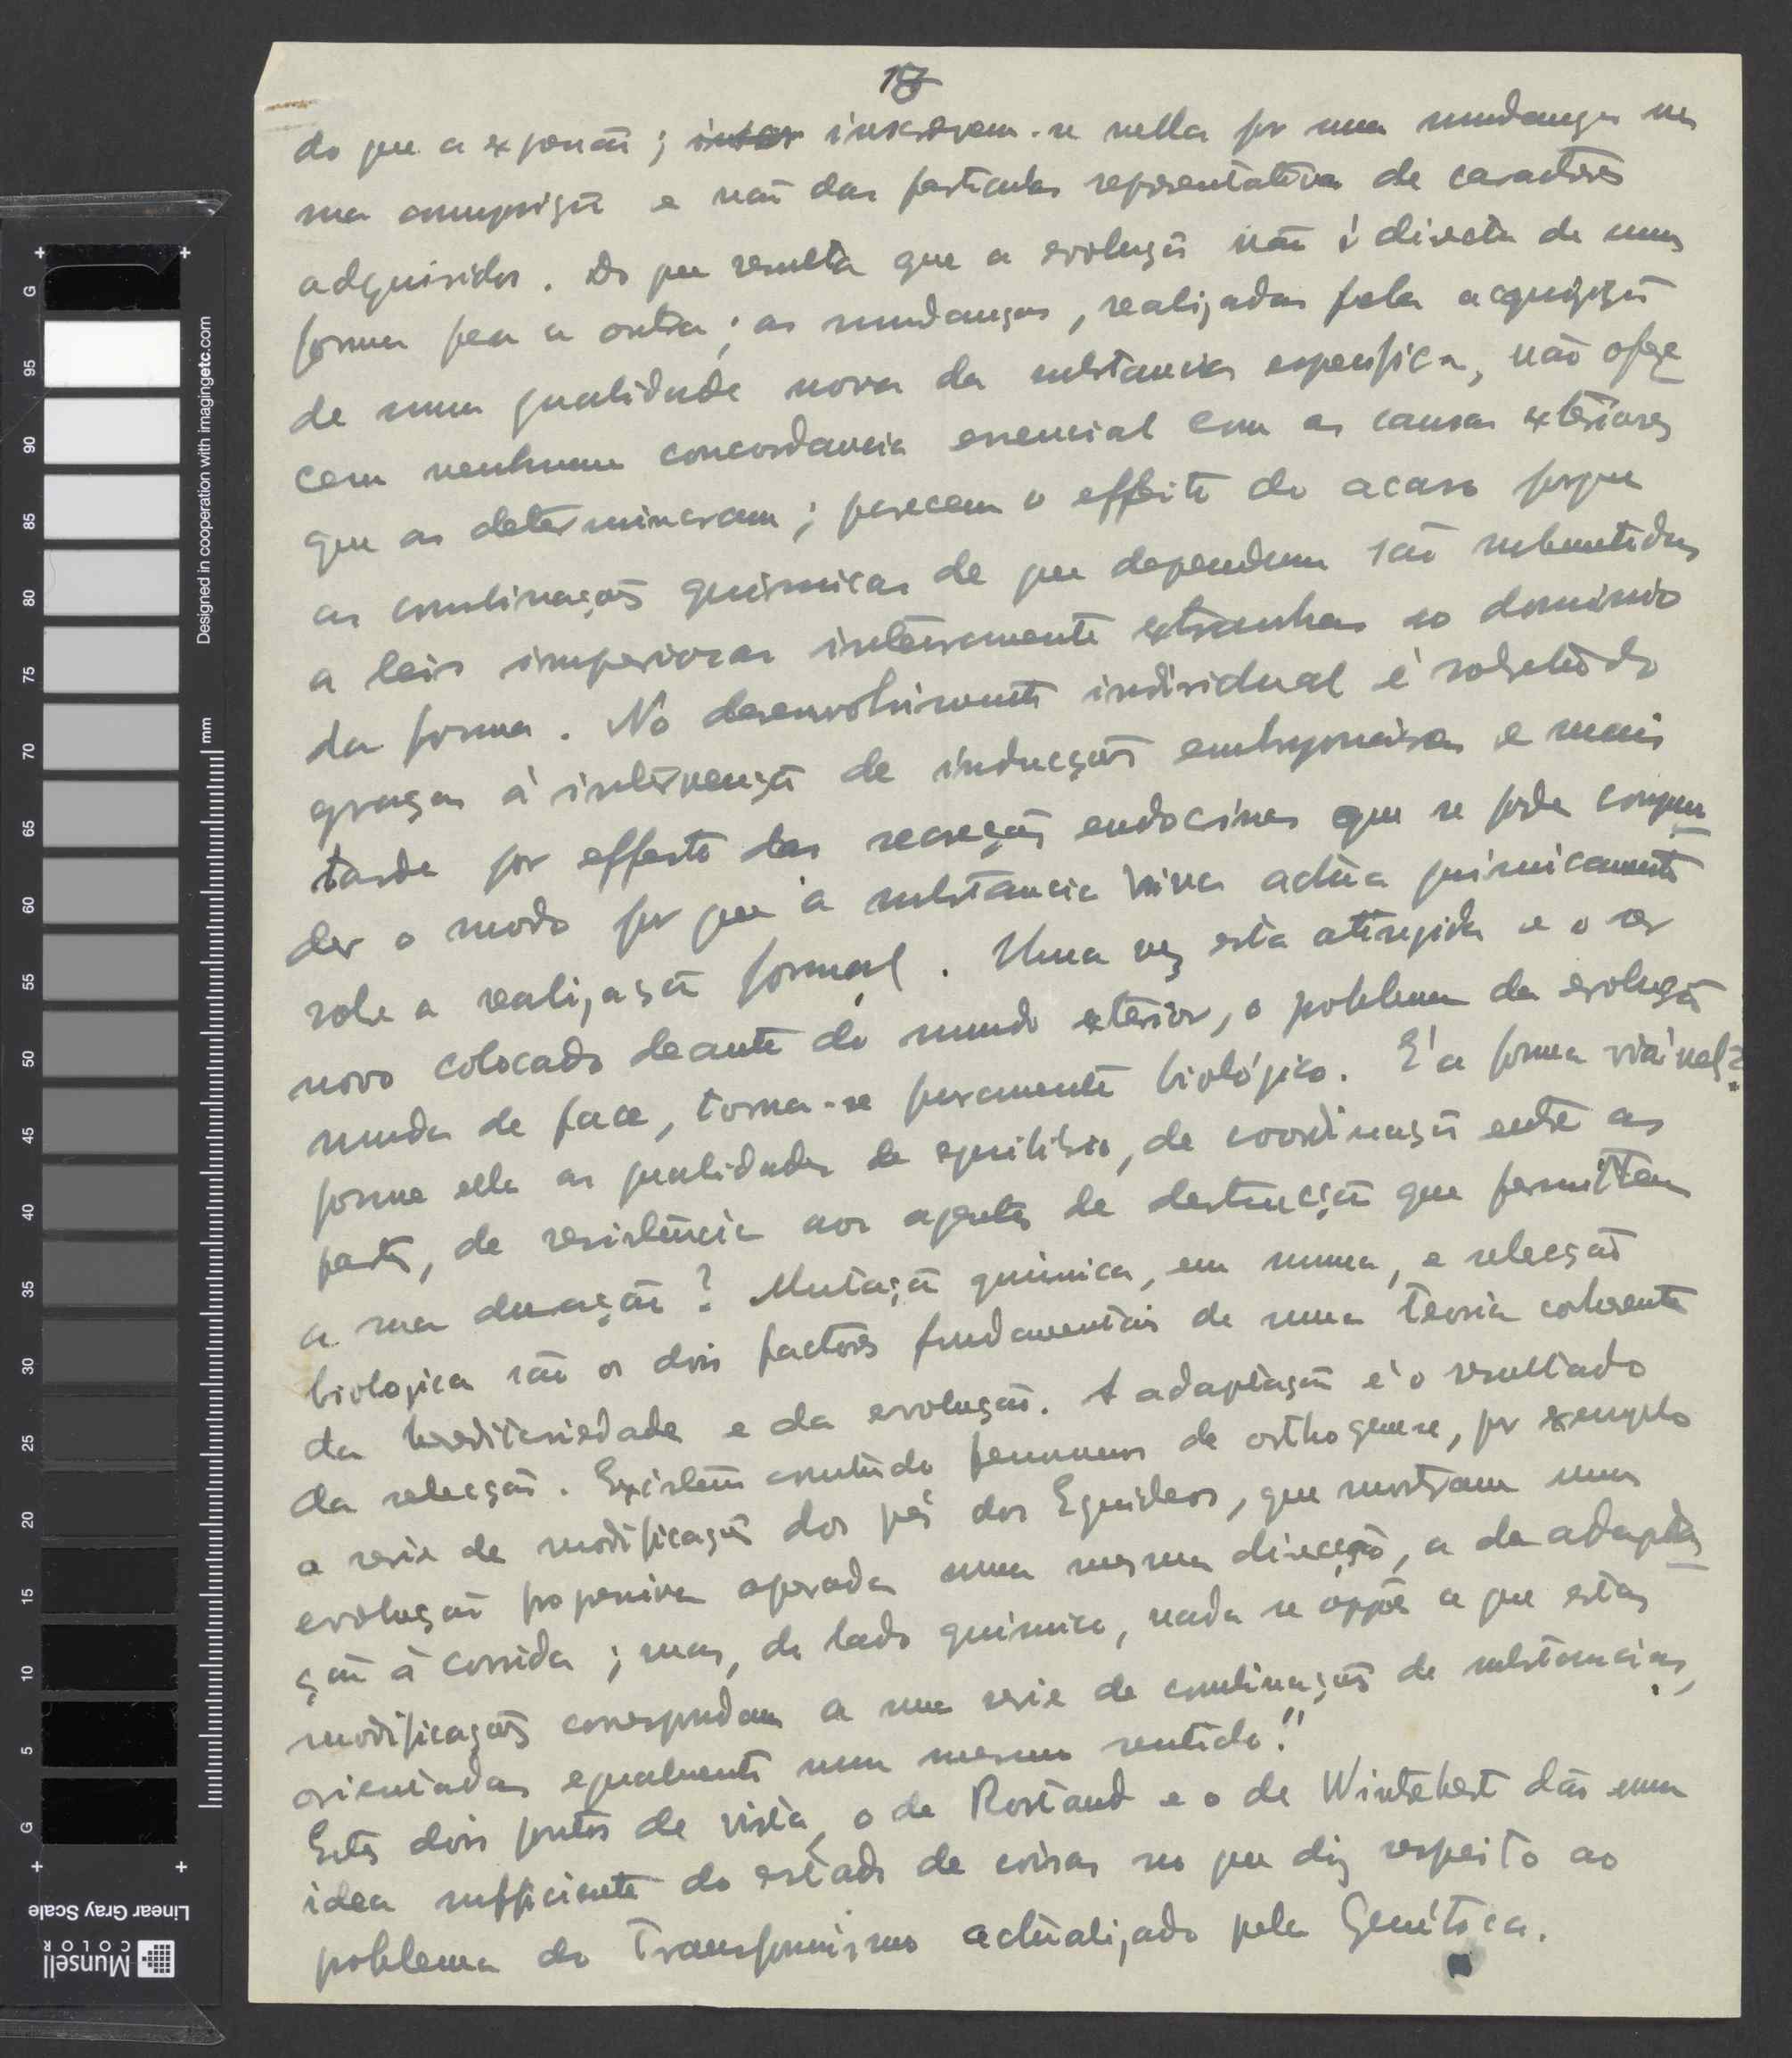 18
do que a expansão; inscrevem-se nella por uma mudança na
sua composição e não das particulas representativas de caracteres
adquiridos. Do que resulta que a evolução não é directa de uma
forma para a outra; as mudanças, realizadas pela acquisição
de uma qualidade nova da substancia especifica, não offere
cem nenhuma concordancia essencial com as causas exteriores
que as determinaram; parecem o effeito do acaso porque
as combinações químicas de que dependem são submettidas
a leis imperiosas inteiramente extranhas ao dominio
da forma. No desenvolvimento individual é sobretudo
graças à intervenção de inducções embryonarias e mais
tarde por effeito das secreções endocrinas que se pode compreen
der o modo por que a substancia viva actúa quimicamente
sobre a realização formal. Uma vez esta atingida e o ser
novo colocado deante do mundo exterior, o problema da evolução
muda de face, torna-se puramente biológico. É a forma viável?
possue ella as qualidades de equilibrio, de coordinação entre as
partes, de resistência aos agentes de destruição que permittem
a sua duração? Mutação química, em summa, e selecção
biologica são os dois factores fundamentais de uma teoria coherente
da hereditariedade e da evolução. A adaptação é o resultado
da selecção. Existem contudo fenomenos de orthogenese, por exemplo
a serie de modificações dos pés dos Equideos, que mostram uma
evolução progressiva operada numa mesma direcção, a da adapta
ção à corrida; mas, do lado químico, nada se oppõe a que estas
modificações correspondam a uma serie de combinações de substancias,
orientadas egualmente num mesmo sentido."
Estes dois pontos de vista, o de Rostand e o de Wintrebert dão uma
idea sufficiente do estado de coisas no que diz respeito ao
problema do Transformismo actualizado pela Genética.
Designed in cooperation with imagingetc.com
mm
G 95 90 85 80 75 70 65 60 55 50 45 40 35 30 25 20 15 10 5 G
Linear Gray Scale
Munsell
COLOR